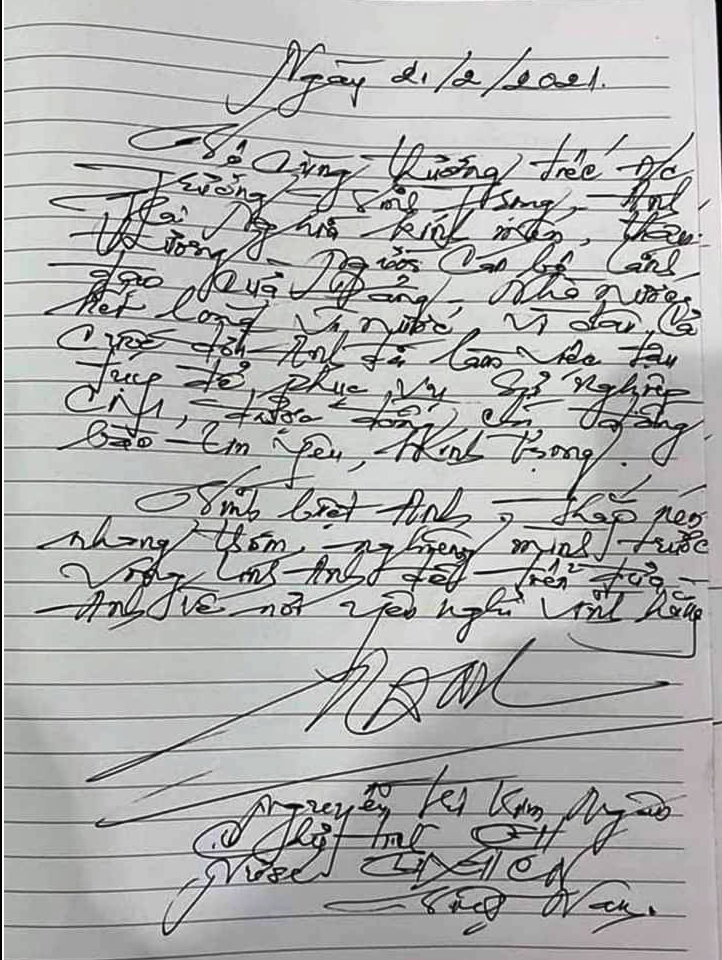 Ngày 21/2/2021.
Vô cùng thương tiếc A/c
Trương Vĩnh Trọng, Anh
Hai Nghĩa kính mến, thân
thương - Người Cán bộ lãnh
đạo của Đảng - Nhà nước
hết lòng vì nước, vì dân, cả
cuộc đời Anh đã làm việc tận
tụy để phục vụ sự nghiệp
CM, được đồng chí đồng
bào tin yêu, kính trọng.
Vĩnh biệt Anh, thắp nén
nhang thơm, nghiêng mình trước
vong linh Anh để tiễn đưa
Anh về nơi yên nghỉ vĩnh hằng
Ngân
Nguyễn Thị Kim Ngân
Chủ tịch QH
Nước CHXHCN
Việt Nam.